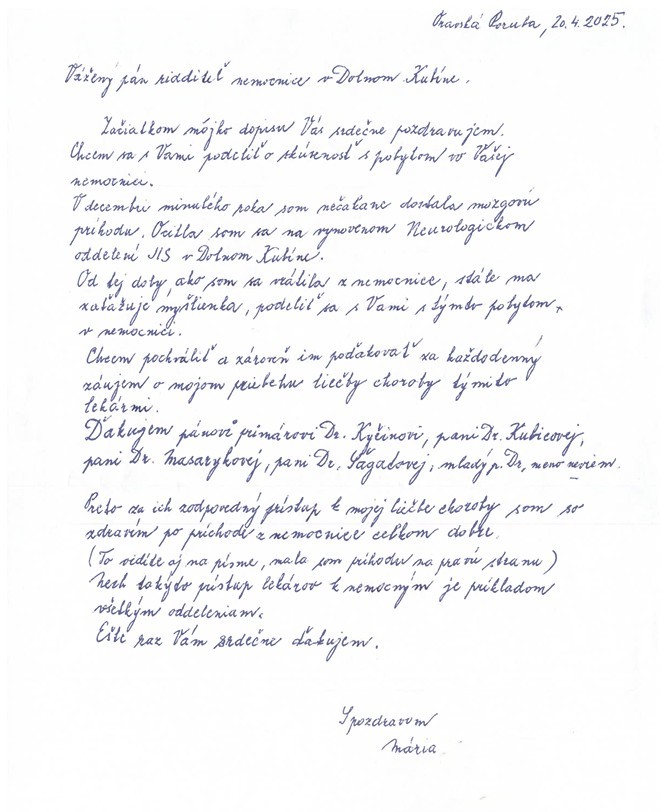 Oravská Poruba, 20.4.2025.
Vážený pán riadditeľ nemocnice v Dolnom Kubíne.
Začiatkom môjho dopisu Vás srdečne pozdravujem.
Chcem sa s Vami podeliť o skúsenosť s pobytom vo Vašej
nemocnici.
V decembri minulého roka som nečakane dostala mozgovú
príhodu. Ocitla som sa na vynovenom Neurologickom
oddelení JIS v Dolnom Kubíne.
Od tej doby, ako som sa vrátila z nemocnice, stále ma
zaťažuje myšlienka, podeliť sa s Vami s týmto pobytom,
v nemocnici.
Chcem pochváliť a zároveň im poďakovať za každodenný
záujem o mojom priebehu liečby choroby týmito
lekármi.
Ďakujem pánovi primárovi Dr. Kyčinovi, pani Dr. Kubicovej,
pani Dr. Masarykovej, pani Dr. Šagátovej, mladý p. Dr, meno neviem.
Preto za ich zodpovedný prístup k mojej liečbe choroty som so
zdravím po príchode z nemocnice celkom dobre.
(To vidíte aj na písme, mala som príhodu na pravú stranu)
Nech takýto prístup lekárov k nemocným je príkladom
všetkým oddeleniam.
Ešte raz Vám srdečne ďakujem.
S pozdravom
Mária